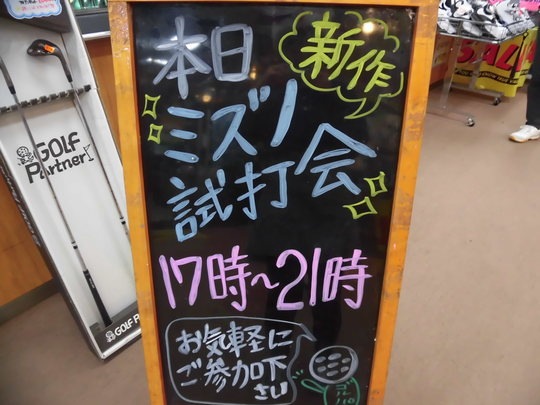 本日
新作
ミズノ
試打会
17時~21時
お気軽に
ご参加下
さい
GOLF
Partner
GOLF